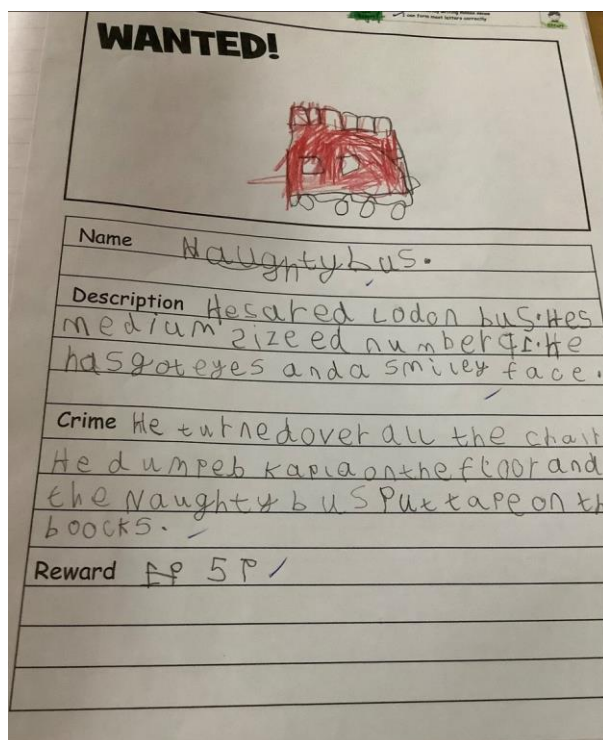 I can form most letters correctly
WANTED!
Name Naughty bus.
Description Hesared Lodon bus. Hes
medium sizeed number He
has got eyes and a smiley face.
Crime He turned over all the chair
He dumped kapla on the floor and
the Naughty bus Put tape on th
boocks.
Reward 5P